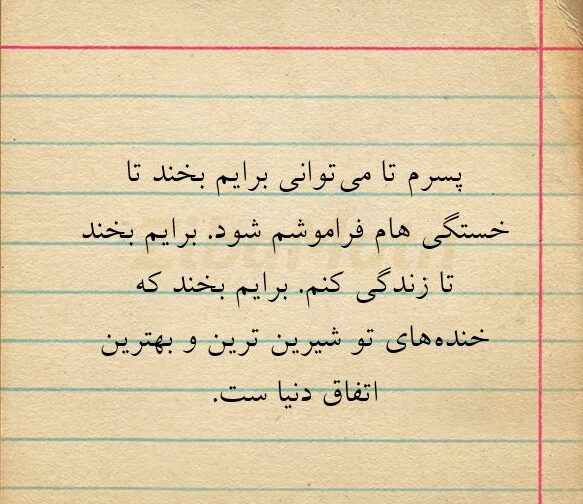 پسرم تا می‌توانی برایم بخند تا
خستگی هام فراموشم شود. برایم بخند
تا زندگی کنم. برایم بخند که
خنده‌های تو شیرین ترین و بهترین
اتفاق دنیا ست.